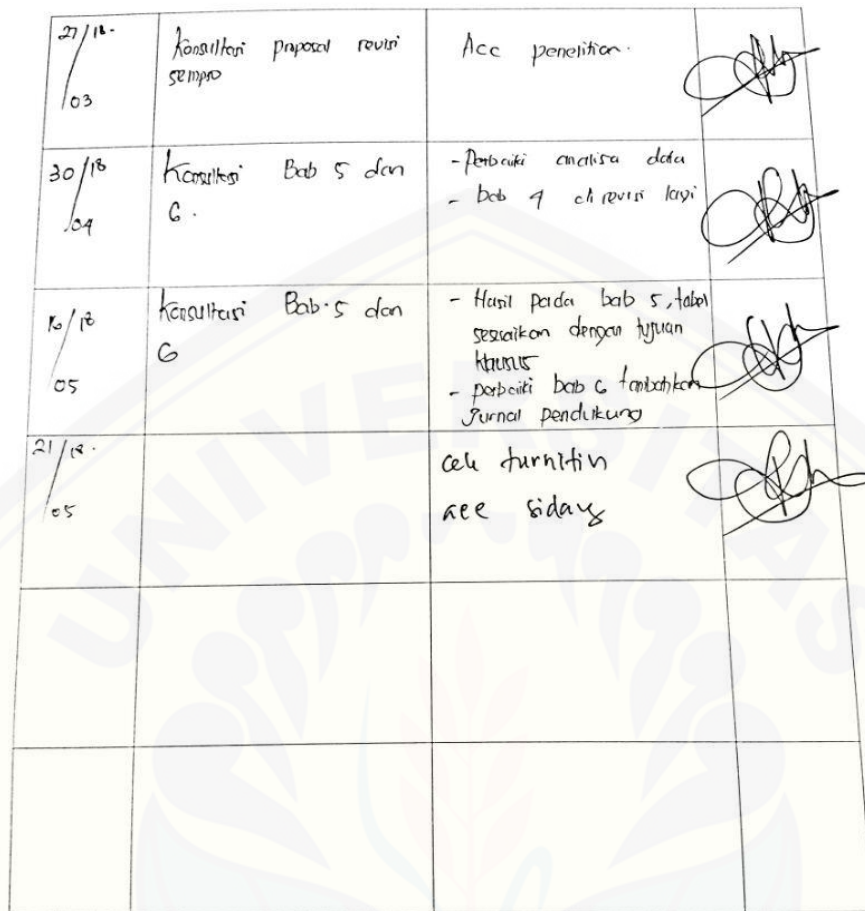 27/18.
/03
Konsultasi proposal revisi
sempro
Acc penelitian.
30/18
/04
Konsultasi Bab 5 dan
6.
- Perbaiki analisa data
- bab 4 di revisi lagi
16/18
/05
Konsultasi Bab 5 dan
6
- Hasil pada bab 5, tabel
sesuaikan dengan tujuan
khusus
- perbaiki bab 6 tambahkan
Jurnal pendukung
21/18.
/05
cek turnitin
acc sidang
UNIVERSITAS